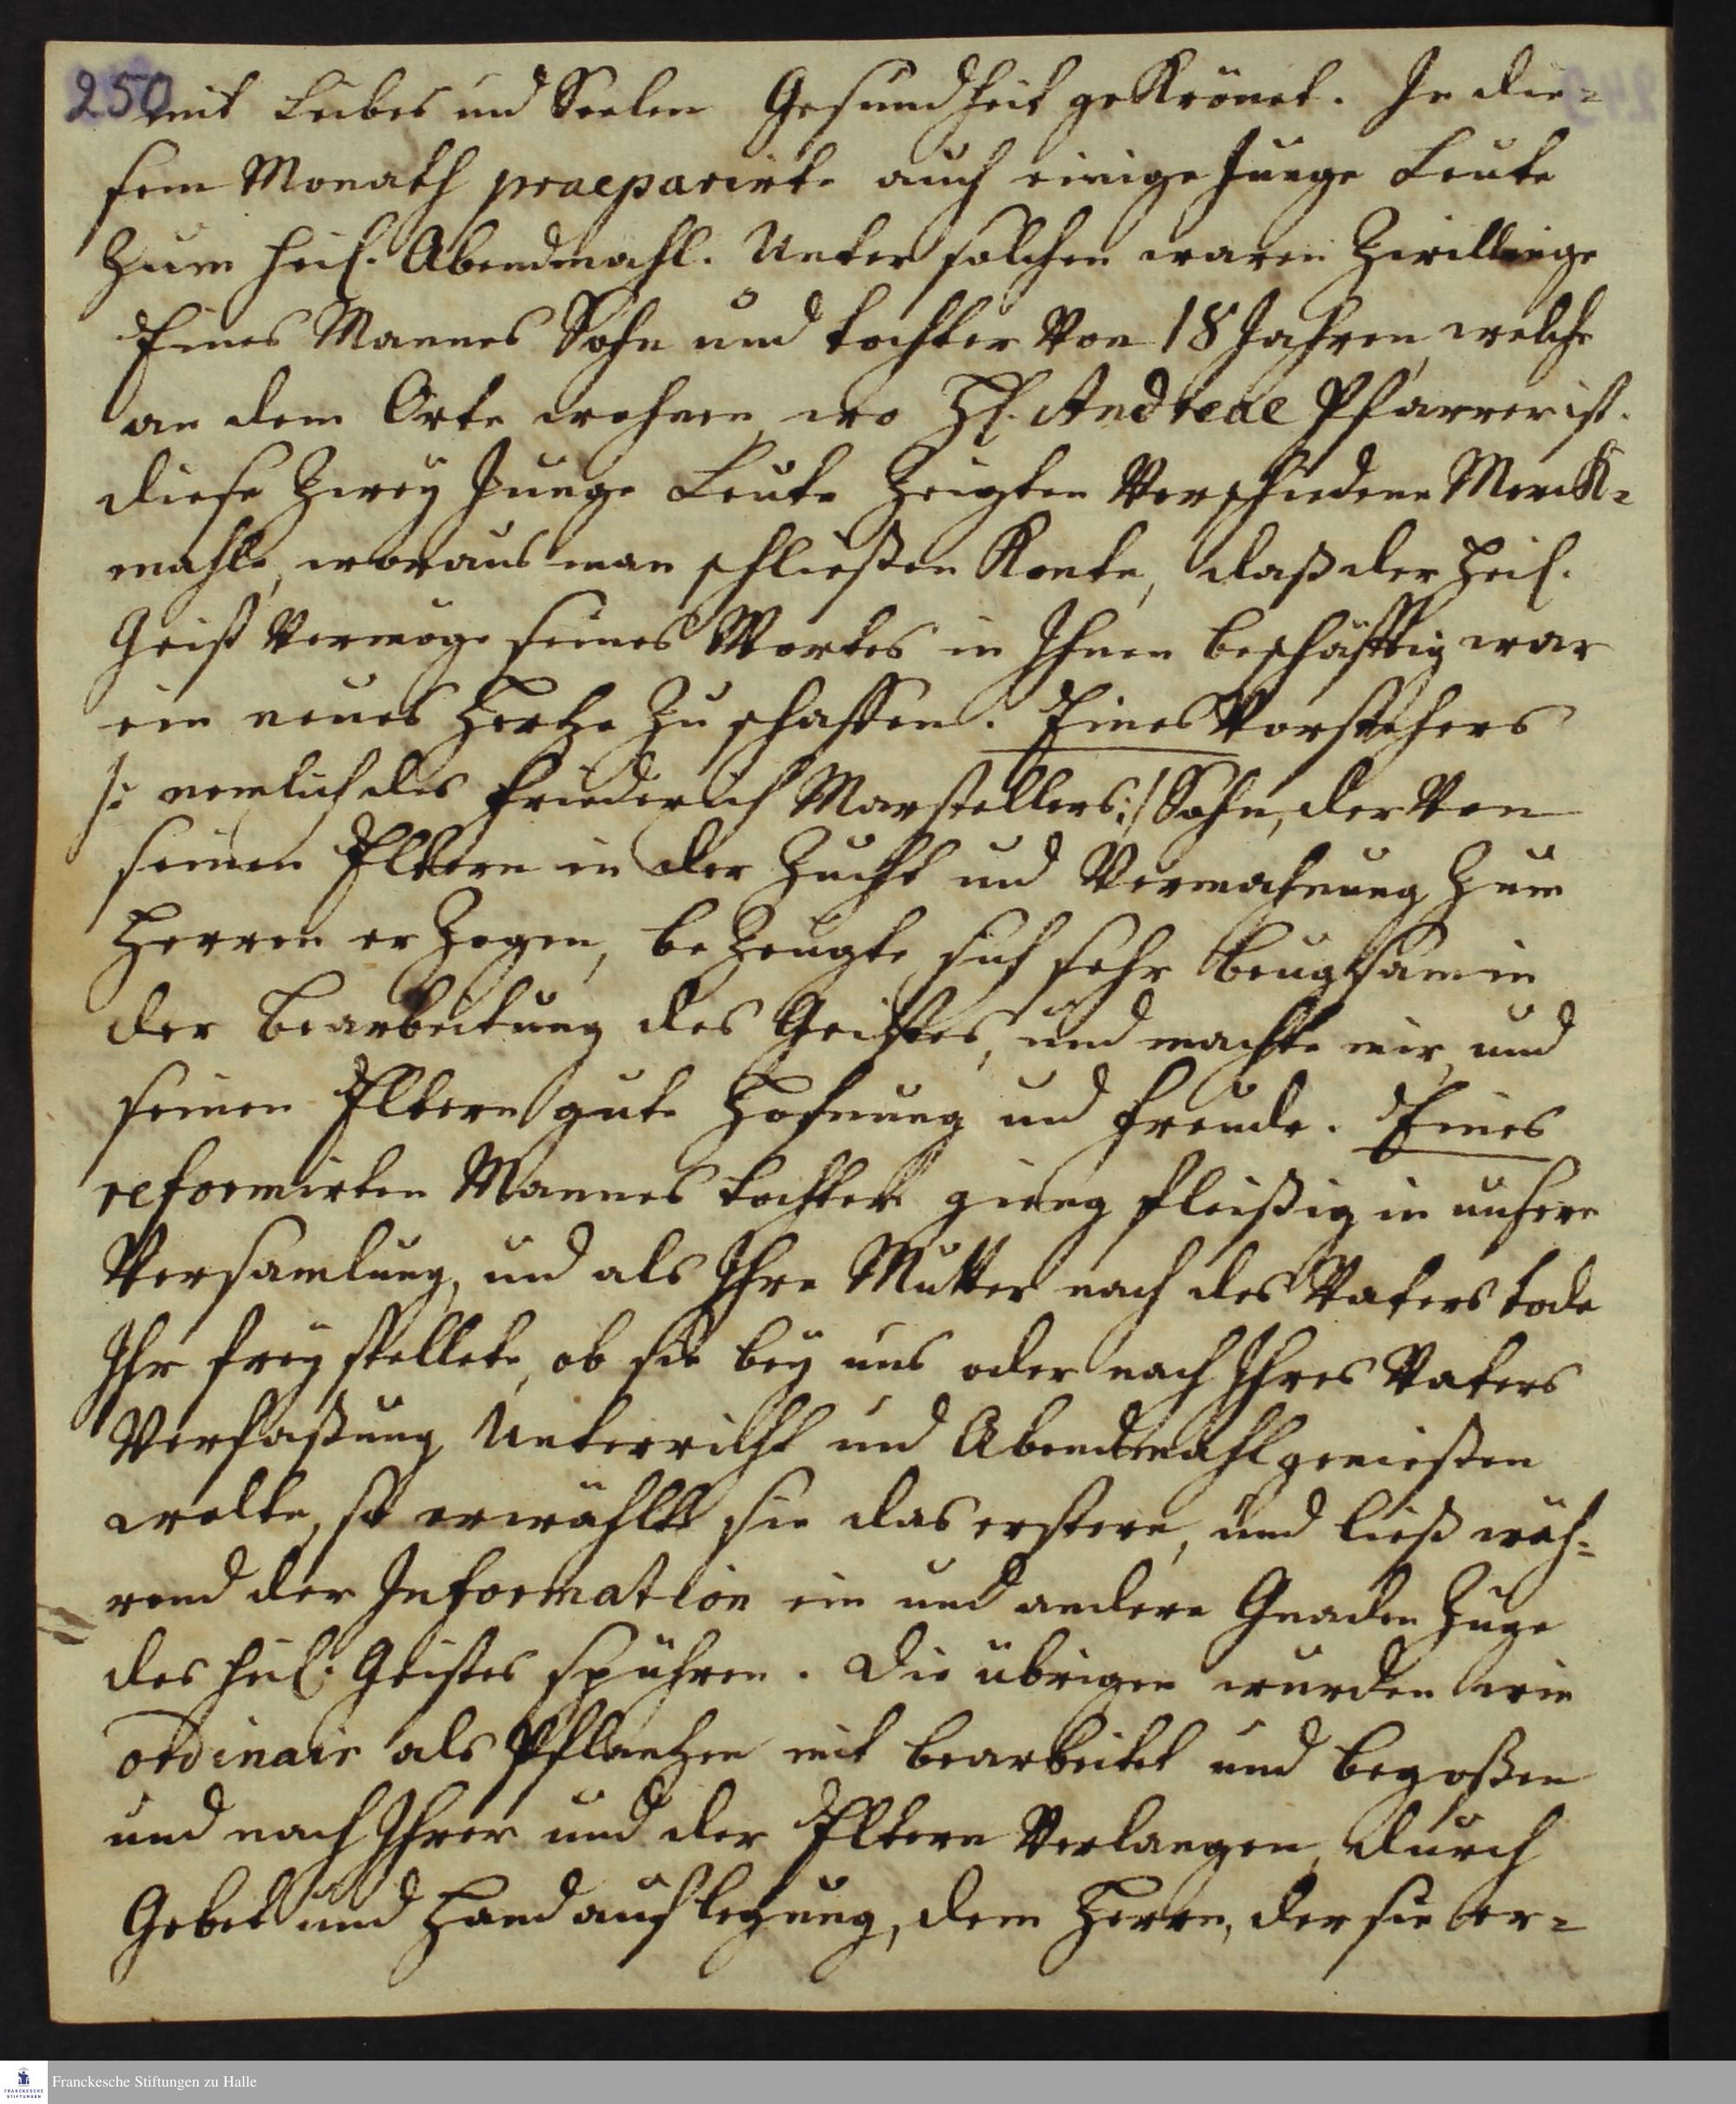 250
mit Leibes und Seelen Gesundheit gekrönet. In die=
sem Monath praeparirte auch einige junge Leute
zum heil. Abendmahl. Unter solchen waren Zwillinge
Eines Mannes Sohn und tochter von 18 Jahren, welche
an dem Orte wohnen, wo H. Andreae Pfarrer ist.
diese zwey junge Leute zeigten verschiedene Merck=
mahle, woraus man schließen konte, daß der heil.
Geist vermöge seines Wortes in Ihnen beschäfftig war
ein neues Hertze zu schaffen. Eines Vorstehers
/: nemlich des Friederich Marstellers :/ Sohn, der von
seinen Eltern in der Zucht und Vermahnung zum
Herren erzogen, bezeugte sich sehr beugsam in
der bearbeitung des Geistes, und machte mir und
seinen Eltern gute Hofnung und freude. Eines
reformirten Mannes tochter gieng fleißig in unsere
Versamlung, und als Ihre Mutter nach des Vaters tode
Ihr frey stellete, ob sie bey uns oder nach Ihres Vaters
Verfaßung Unterricht und Abendmahl genießen
wolte, so erwählte sie das erstere, und ließ wäh=
rend der Information ein und andere Gnaden Züge
des heil. Geistes spühren. die übrigen wurden wie
ordinair als Pflantzen mit bearbeitet und begoßen
und nach Ihrer und der Eltern Verlangen, durch
Gebet und Hand auflegung, dem Herrn, der sie er=
Franckesche Stiftungen zu Halle
FRANCKESCHE
STIFTUNGEN